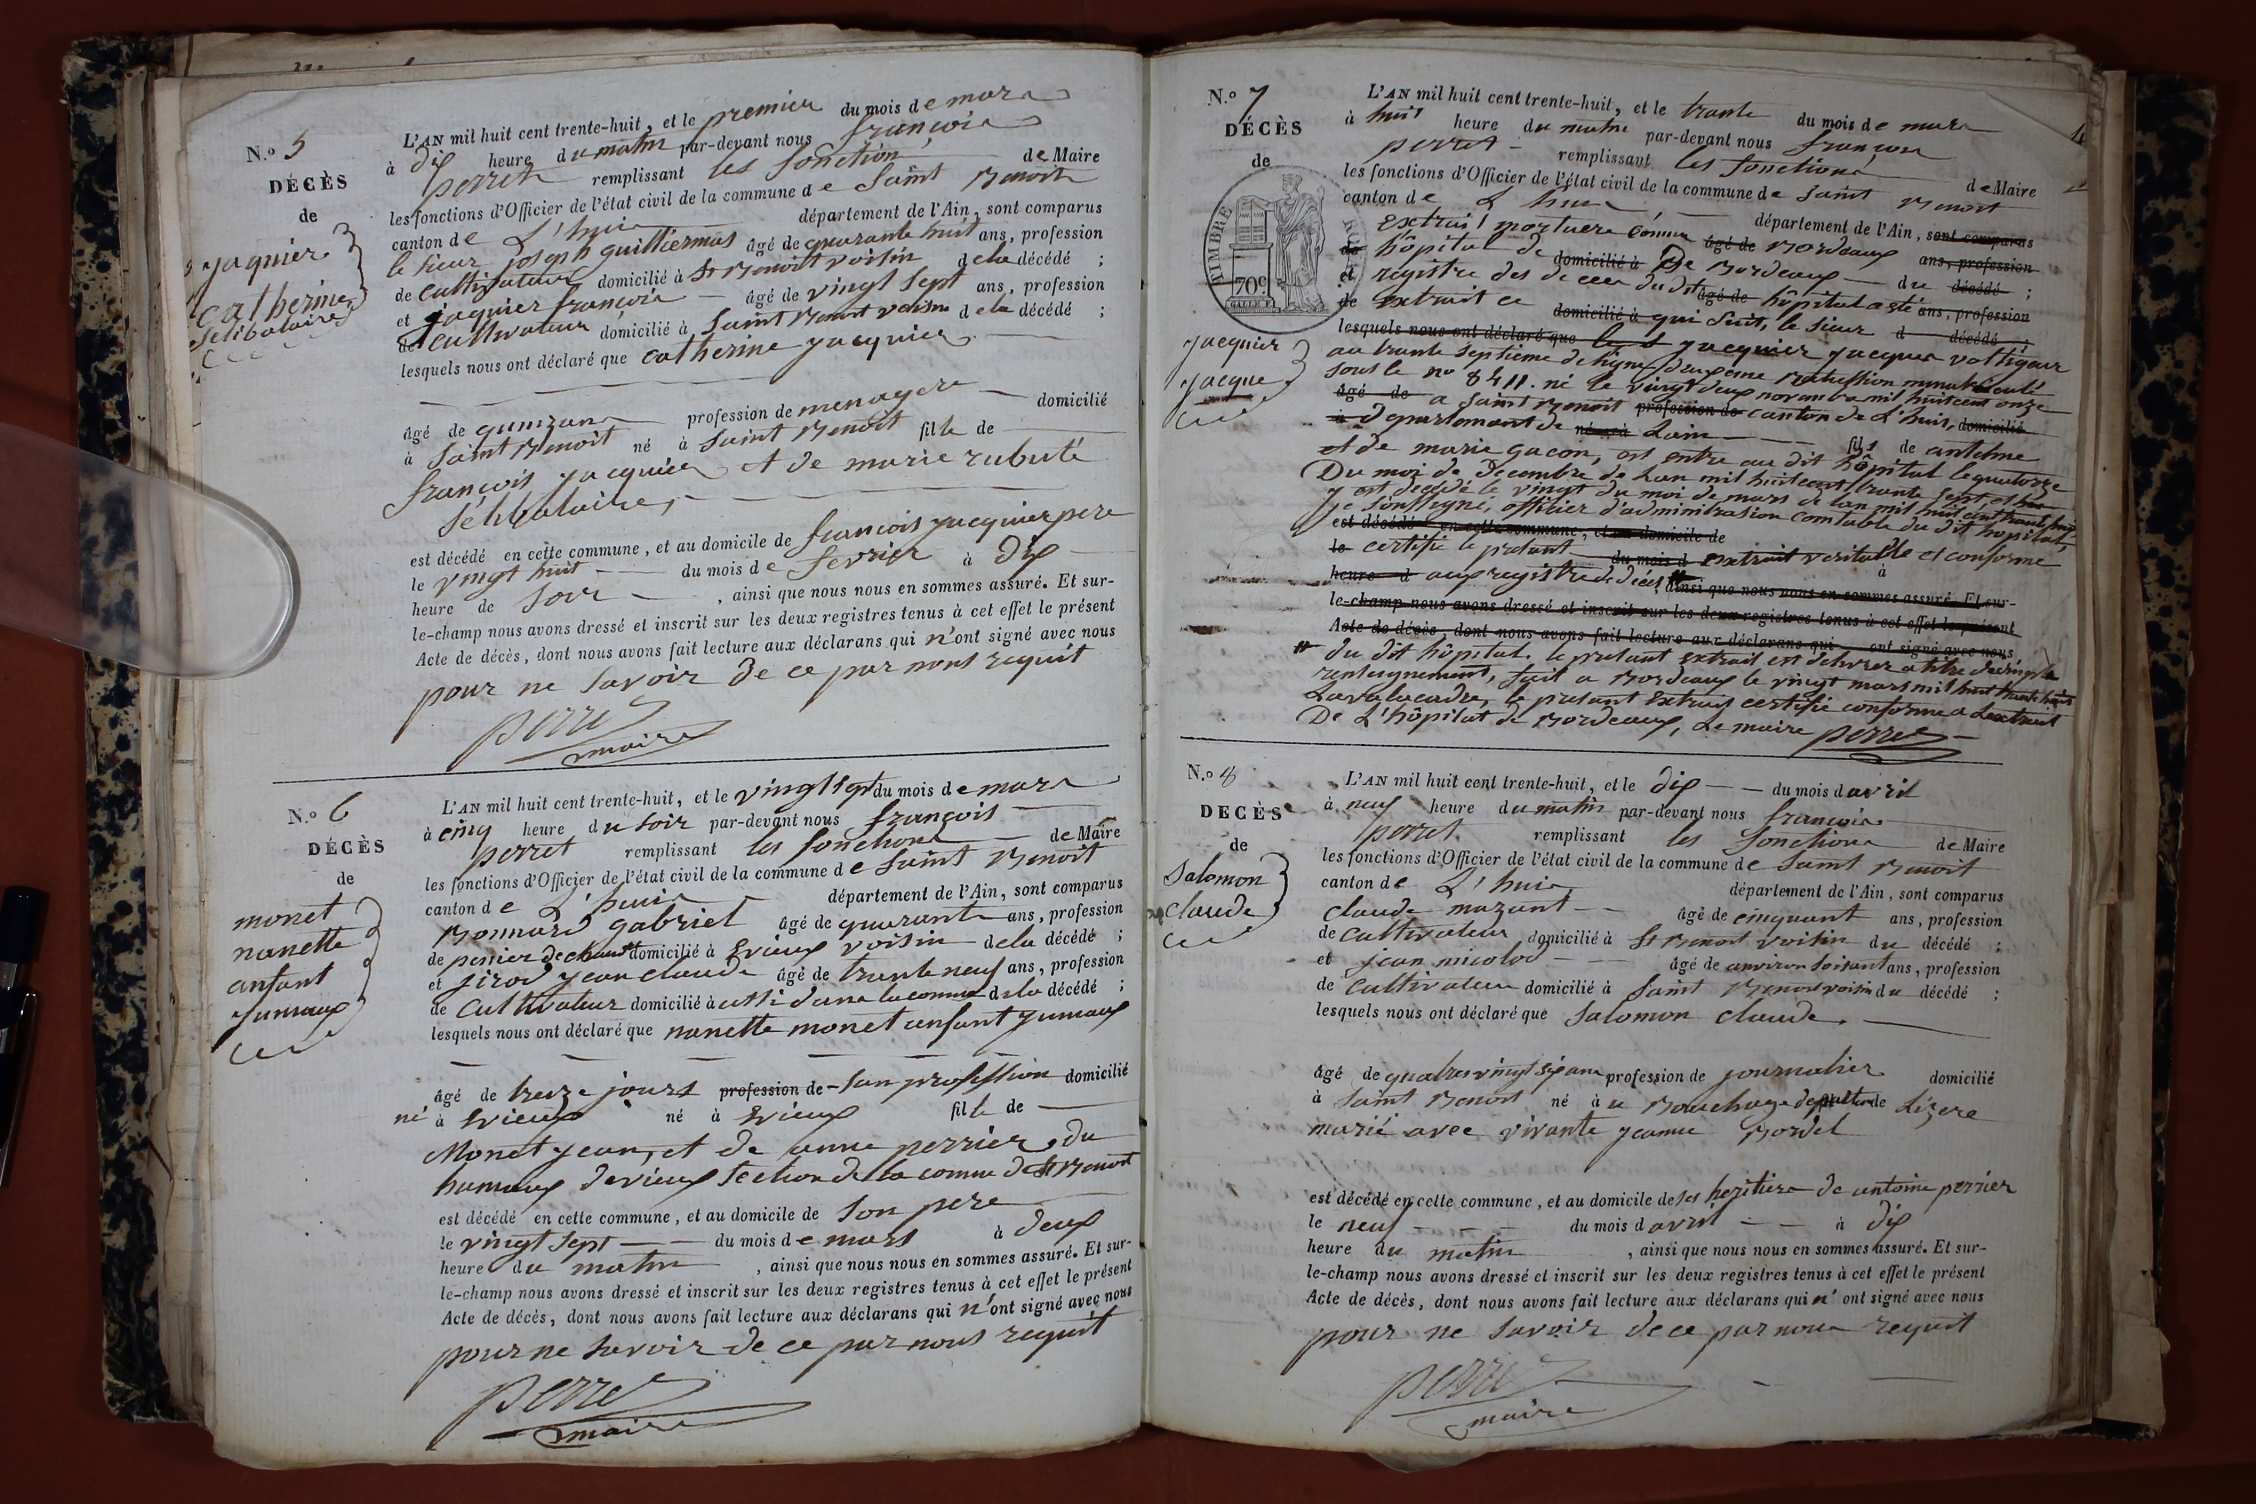 N.o 5
DÉCÈS
de
jaquier
catherine
selibataire
L'AN mil huit cent trente-huit, et le premier du mois de mars
à dix heure du matin par-devant nous françois
perret remplissant les fonction de Maire
les fonctions d'Officier de l'état civil de la commune de saint Benoit
canton de L'huis département de l'Ain, sont comparus
le sieur joseph guilliermas âgé de quarante huit ans, profession
de cultivateur domicilié à St Benoit voisin de la décédé ;
et jaquier françois âgé de vingt sept ans, profession
de cultivateur domicilié à saint Benoit voisin de la décédé ;
lesquels nous ont déclaré que catherine jacquier
âgé de quinzans profession de menagere domicilié
à saint Benoit né à saint Benoit fille de
françois jacquier et de marie rubaté
sélibataire,
est décédé en cette commune, et au domicile de francois jacquier pere
le vingt huit du mois de fevrier à dix
heure de soir, ainsi que nous nous en sommes assuré. Et sur-
le-champ nous avons dressé et inscrit sur les deux registres tenus à cet effet le présent
Acte de décès, dont nous avons fait lecture aux déclarans qui n'ont signé avec nous
pour ne savoir de ce par nous requit
perret
maire
N.o 6
DÉCÈS
de
monet
nanette
anfant
jumaux
L'AN mil huit cent trente-huit, et le vingt sept du mois de mars
à cinq heure du soir par-devant nous françois
perret remplissant les fonctions de Maire
les fonctions d'Officier de l'état civil de la commune de saint Benoit
canton de L'huis département de l'Ain, sont comparus
Bonnard gabriel âgé de quarante ans, profession
de domicilié à Evieux voisin de la décédé ;
et jean claude âgé de trante neuf ans, profession
de cultivateur domicilié à de la décédé ;
lesquels nous ont déclaré que nanette monet anfant jumaux
âgé de treize jours profession de san profession domicilié
né à Evieux né à Evieux fille de
Monet jean, et de anne perrier du
hameaux devieux section de la comune de St Benoit
est décédé en cette commune, et au domicile de son pere
le vingt sept du mois de mars à deux
heure du matin, ainsi que nous nous en sommes assuré. Et sur-
le-champ nous avons dressé et inscrit sur les deux registres tenus à cet effet le présent
Acte de décès, dont nous avons fait lecture aux déclarans qui n'ont signé avec nous
pour ne savoir de ce par nous requit
perret
maire
N.o 7
DÉCÈS
de
TIMBRE ROYAL
70c
jacquier
jacque
L'AN mil huit cent trente-huit, et le trante du mois de mars
à huit heure du matin par-devant nous françois
perret remplissant les fonctions de Maire
les fonctions d'Officier de l'état civil de la commune de saint Benoit
canton de L'huis département de l'Ain, sont comparus
Extrait mortuere âgé de Bordeaux ans, profession
de hôpital de domicilié à De Bordeaux du décédé ;
et registre des deces du dit âgé de hôpital a eté ans, profession
de extrait ce domicilié à qui suit, le sieur d décédé ;
lesquels nous ont déclaré que le s jacquier jacques voltigeur
au trante septieme de ligne deuxieme Bataillion
sous le no 8411. né le vingt deux novambre mil huitcent onze
âgé de a saint Benoit profession de canton de L'huis, domicilié
à departement de né à Lain fils de antelme
et de marie gacon, est entre au dit hôpital le quatorze
Du moi de decembre de Lan mil huit cent trante sept, et
y est decédé le vingt du moi de mars de lan mil huit cent trante huit
je soussigné, officier d'administrasion comtable du dit hopital,
est décédé en cette commune, et au domicile de
le certifie le présant du mois d extrait veritable et conforme
heure d aux registre de décés à ainsi que nous nous en sommes assuré. Et sur-
le-champ nous avons dressé et inscrit sur les deux registres tenus à cet effet le présent
Acte de décès, dont nous avons fait lecture aux déclarans qui ont signé avec nous
du dit hôpital. le présant extrait est delivrer a titre de simple
ranseignement, fait a Bordeaux le vingt mars mil huit trante huit
le présant Extrait certifié conforme a Lextrait
De L'hôpital de Bordeaux, Le maire perret
N.o 8
DÉCÈS
de
Salomon
claude
L'AN mil huit cent trente-huit, et le dix du mois d avril
à neuf heure du matin par-devant nous françois
perret remplissant les fonctions de Maire
les fonctions d'Officier de l'état civil de la commune de saint Benoit
canton de L'huis département de l'Ain, sont comparus
claude mazant âgé de cinquant ans, profession
de cultivateur domicilié à St Benoit voisin du décédé ;
et jean micolod âgé de anviron soisant ans, profession
de cultivateur domicilié à saint Benoit voisin du décédé ;
lesquels nous ont déclaré que salomon claude.
âgé de quatres vingt six ans profession de journalier domicilié
à saint Benoit né à u Bouchage de Lizere
marié avec vivante jeanne Bordel
est décédé en cette commune, et au domicile de les heritiers de antoine perrier
le neuf du mois d avril à dix
heure du matin, ainsi que nous nous en sommes assuré. Et sur-
le-champ nous avons dressé et inscrit sur les deux registres tenus à cet effet le présent
Acte de décès, dont nous avons fait lecture aux déclarans qui n' ont signé avec nous
pour ne savoir de ce par nous requit
perret
maire